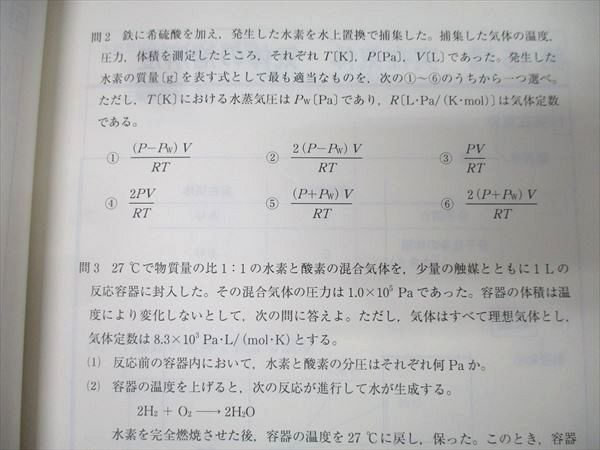 問2 鉄に希硫酸を加え，発生した水素を水上置換で捕集した。捕集した気体の温度，
圧力，体積を測定したところ，それぞれ T〔K〕，P〔Pa〕，V〔L〕であった。発生した
水素の質量〔g〕を表す式として最も適当なものを，次の①〜⑥のうちから一つ選べ。
ただし，T〔K〕における水蒸気圧は PW〔Pa〕であり，R〔L·Pa/(K·mol)〕は気体定数
である。
① (P−PW) V / RT ② 2 (P−PW) V / RT ③ PV / RT
④ 2PV / RT ⑤ (P+PW) V / RT ⑥ 2 (P+PW) V / RT
問3 27 ℃で物質量の比1：1の水素と酸素の混合気体を，少量の触媒とともに1Lの
反応容器に封入した。その混合気体の圧力は 1.0×10⁵ Pa であった。容器の体積は温
度により変化しないとして，次の問に答えよ。ただし，気体はすべて理想気体とし，
気体定数は 8.3×10³ Pa·L/(mol·K) とする。
(1) 反応前の容器内において，水素と酸素の分圧はそれぞれ何 Pa か。
(2) 容器の温度を上げると，次の反応が進行して水が生成する。
2H₂ + O₂ ⟶ 2H₂O
水素を完全燃焼させた後，容器の温度を 27 ℃に戻し，保った。このとき，容器